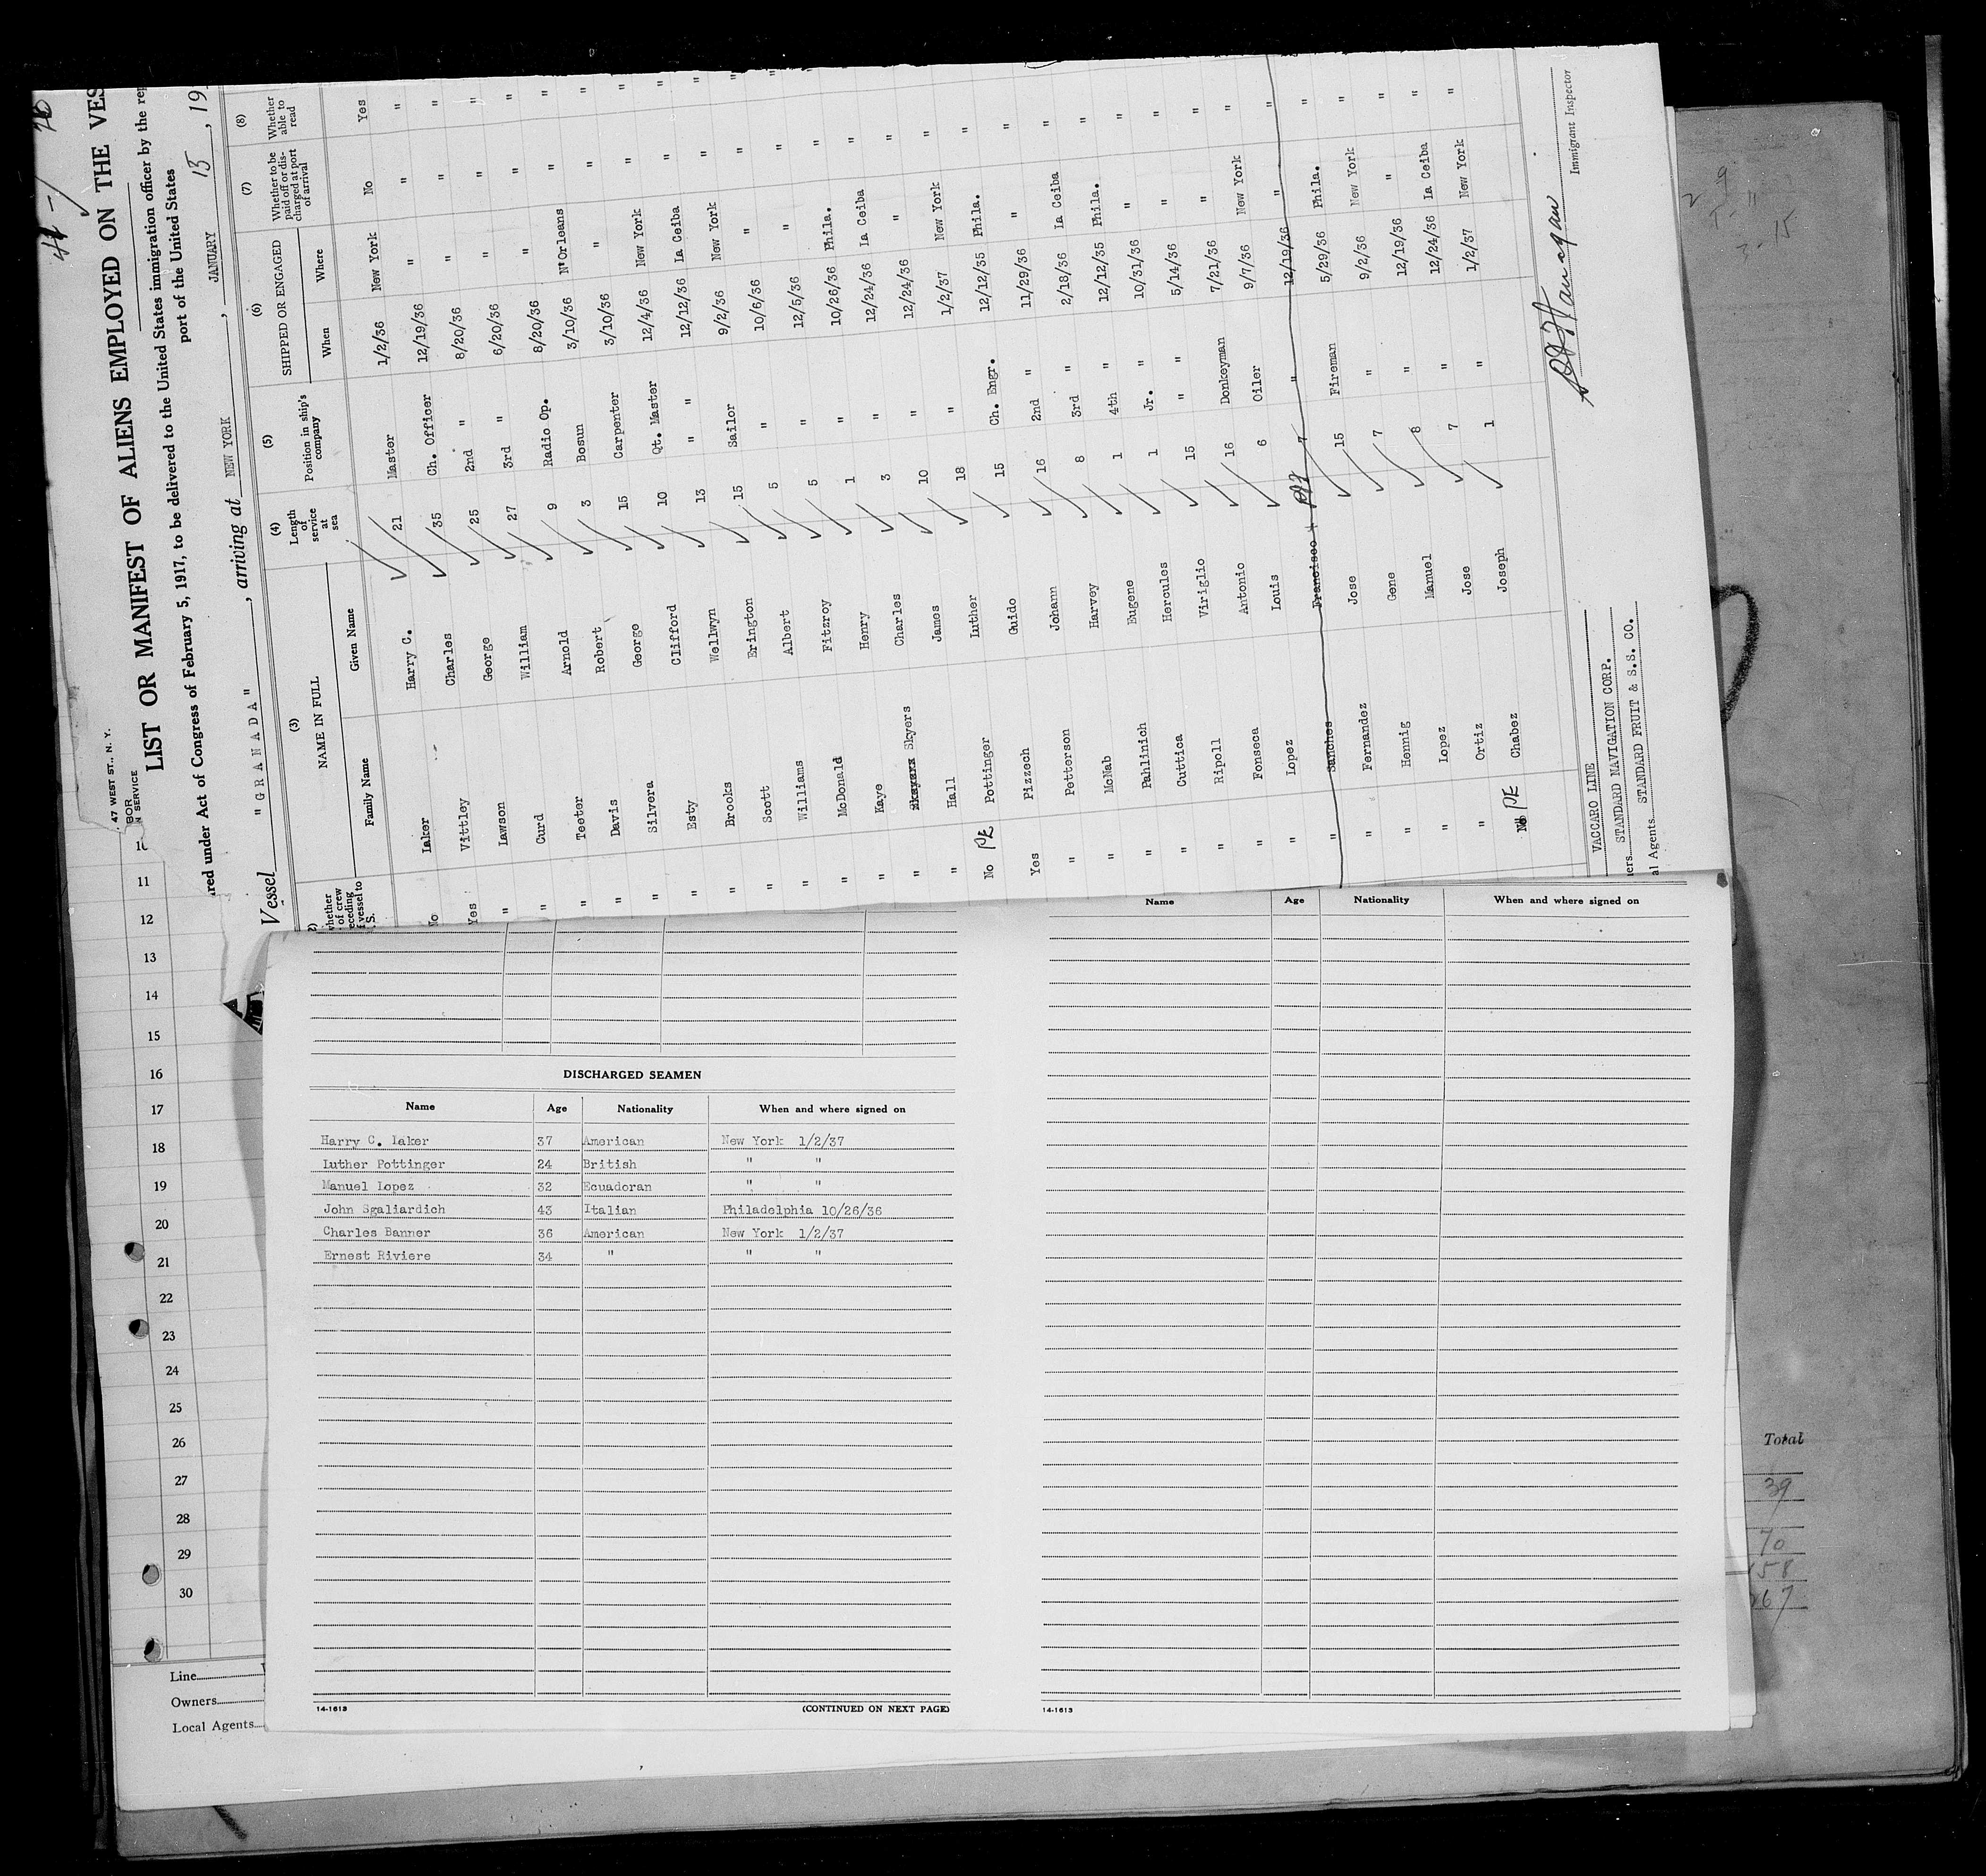 47 WEST ST., N. Y.
LIST OR MANIFEST OF ALIENS EMPLOYED ON THE VES
red under Act of Congress of February 5, 1917, to be delivered to the United States immigration officer by the rep
port of the United States
Vessel "GRANADA", arriving at NEW YORK, JANUARY 15, 19
(3) (4) (5) (6) (7) (8)
NAME IN FULL Length of service at sea Position in ship's company SHIPPED OR ENGAGED Whether to be paid off or discharged at port of arrival Whether able to read
Family Name Given Name When Where
No Laker Harry C. 21 Master 1/2/36 New York No Yes
Yes Vittley Charles 35 Ch. Officer 12/19/36 " " "
" Lawson George 25 2nd " 8/20/36 " " "
" Curd William 27 3rd " 6/20/36 " " "
" Teeter Arnold 9 Radio Op. 8/20/36 " " "
" Davis Robert 3 Bosun 3/10/36 N'Orleans " "
" Silvera George 15 Carpenter 3/10/36 " " "
" Esty Clifford 10 Qt. Master 12/4/36 New York " "
" Brooks Wellwyn 13 " " 12/12/36 La Ceiba " "
" Scott Erington 15 Sailor 9/2/36 New York " "
" Williams Albert 5 " 10/6/36 " " "
" McDonald Fitzroy 5 " 12/5/36 " "
" Kaye Henry 1 " 10/26/36 Phila. "
" Skyers Charles 3 " 12/24/36 La Ceiba "
" Hall James 10 " 12/24/36 " "
No Pottinger Luther 18 " 1/2/37 New York "
Yes Pizzech Guido 15 Ch. Engr. 12/12/35 Phila. "
" Petterson Johann 16 2nd " 11/29/36 " "
" McNab Harvey 8 3rd " 2/18/36 La Ceiba "
" Pahlinich Eugene 1 4th " 12/12/35 Phila. "
" Cuttica Hercules 1 Jr. " 10/31/36 " "
" Ripoll Viriglio 15 " " 5/14/36 " "
" Fonseca Antonio 16 Donkeyman 7/21/36 " "
" Lopez Louis 6 Oiler 9/7/36 New York "
" Sanches Francisco 7 " 12/19/36 " "
" Fernandez Jose 15 Fireman 5/29/36 Phila. "
" Hennig Gene 7 " 9/2/36 New York "
" Lopez Manuel 8 " 12/19/36 " "
" Ortiz Jose 7 " 12/24/36 La Ceiba "
Chabez Joseph 1 " 1/2/37 New York "
VACCARO LINE
STANDARD NAVIGATION CORP.
al Agents STANDARD FRUIT & S.S. CO.
Immigrant Inspector
11
12
13
14
15
16
17
18
19
20
21
22
23
24
25
26
27
28
29
30
Line
Owners
Local Agents
DISCHARGED SEAMEN
Name Age Nationality When and where signed on
Harry C. Laker 37 American New York 1/2/37
Luther Pottinger 24 British " "
Manuel Lopez 32 Ecuadoran " "
John Sgaliardich 43 Italian Philadelphia 10/26/36
Charles Banner 36 American New York 1/2/37
Ernest Riviere 34 " " "
14-1613 (CONTINUED ON NEXT PAGE)
Name Age Nationality When and where signed on
14-1613
Total
39
70